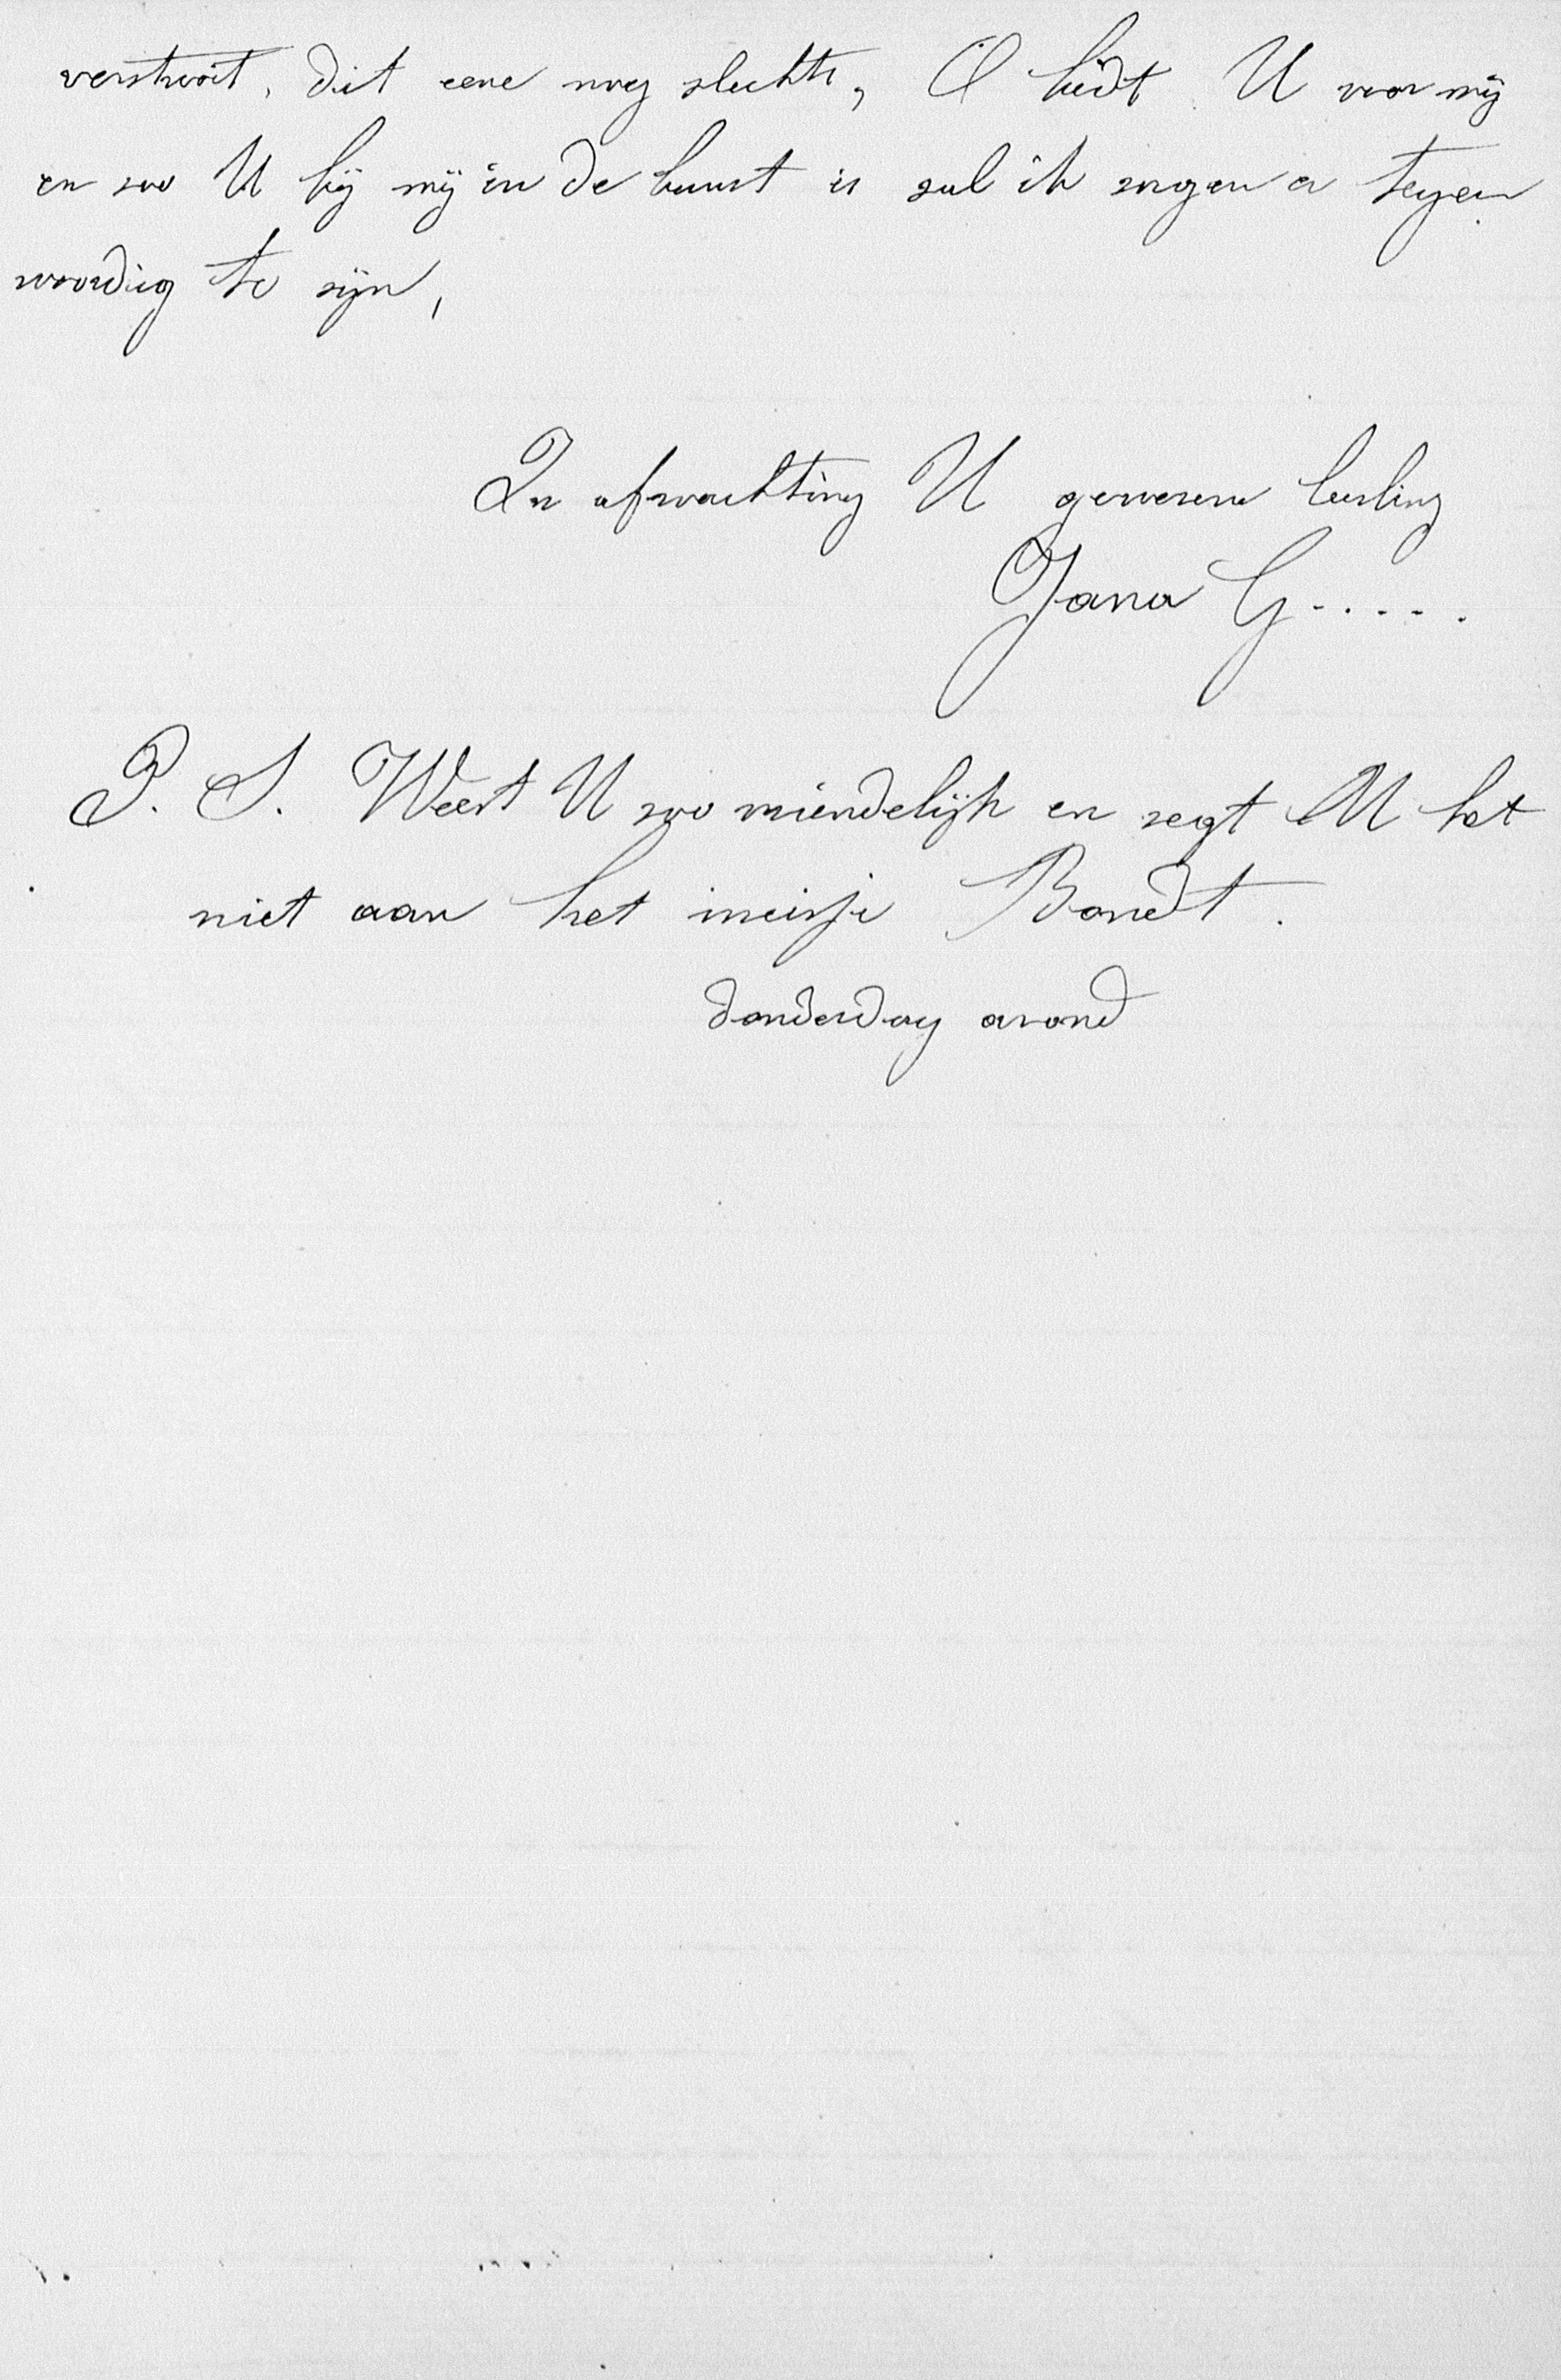 verstrooit, dit eene nog slechts, O biedt U voor mij
en zoo U bij mij in de buurt is zal ik zorgen er tegen
woordig te zijn,
In afwachting U gewezene leerling
Jana G.....
P. S. Weest U zoo vriendelijk en zegt U het
niet aan het meisje Bondt.
donderdag avond